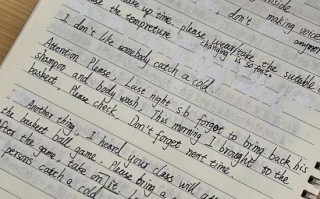 inside
make up time, please wear/take the suitable
don't making voice
the tempreture changing is so fast
I don't like somebody catch a cold.
Attention Please, Last night sb. forgot to bring back his
shampoo and body wash, This morning I brought to the
basbeet, Please check, Don't forget next time.
Another thing, I heard your class will
the basbeet ball game, Please bring a
the game, take on it,
persons catch a cold